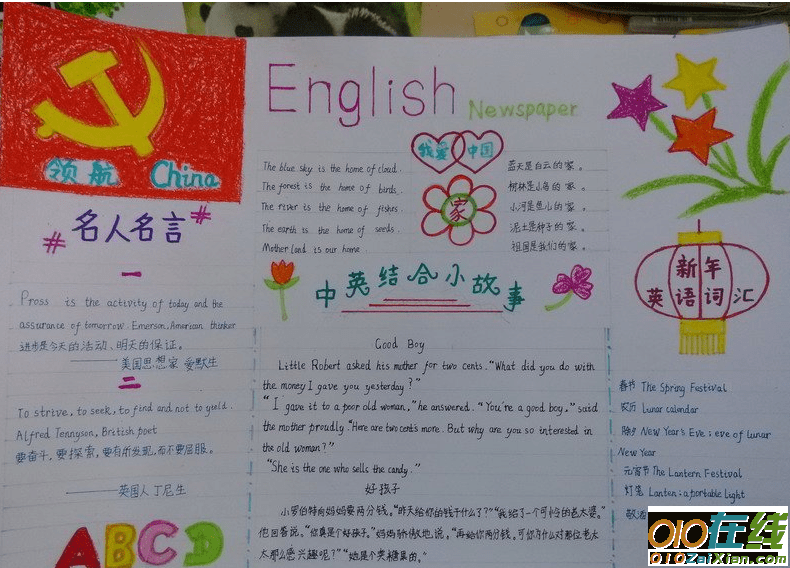 领航 China
English Newspaper
我爱 中国
The blue sky is the home of cloud.
The forest is the home of birds.
The river is the home of fishes.
The earth is the home of seeds.
Mother land is our home.
家
蓝天是白云的家。
树林是小鸟的家。
小河是鱼儿的家。
泥土是种子的家。
祖国是我们的家。
# 名人名言 #
一
Pross is the activity of today and the
assurance of tomorrow. Emerson. American thinker
进步是今天的活动、明天的保证。
——美国思想家 爱默生
二
To strive, to seek, to find and not to yeeld.
Alfred Tennyson, British poet
要奋斗,要探索,要有所发现,而不要屈服。
——英国人丁尼生
ABCD
中英结合小故事
Good Boy
Little Robert asked his mother for two cents. "What did you do with
the money I gave you yesterday?"
"I gave it to a poor old woman," he answered. "You're a good boy," said
the mother proudly. "Here are two cents more. But why are you so interested in
the old woman?"
"She is the one who sells the candy."
好孩子
小罗伯特向妈妈要两分钱。"昨天给你的钱干什么了?""我给了一个可怜的老太婆。"
他回答说。"你真是个好孩子。"妈妈骄傲地说。"再给你两分钱。可你为什对那位老太
太那么感兴趣呢?""她是个卖糖果的。"
新年
英语词汇
春节 The Spring Festival
农历 Lunar calendar
除夕 New Year's Eve; eve of lunar
New Year
元宵节 The Lantern Festival
灯笼 Lanten; a portable light
010在线
010ZaiXian.com